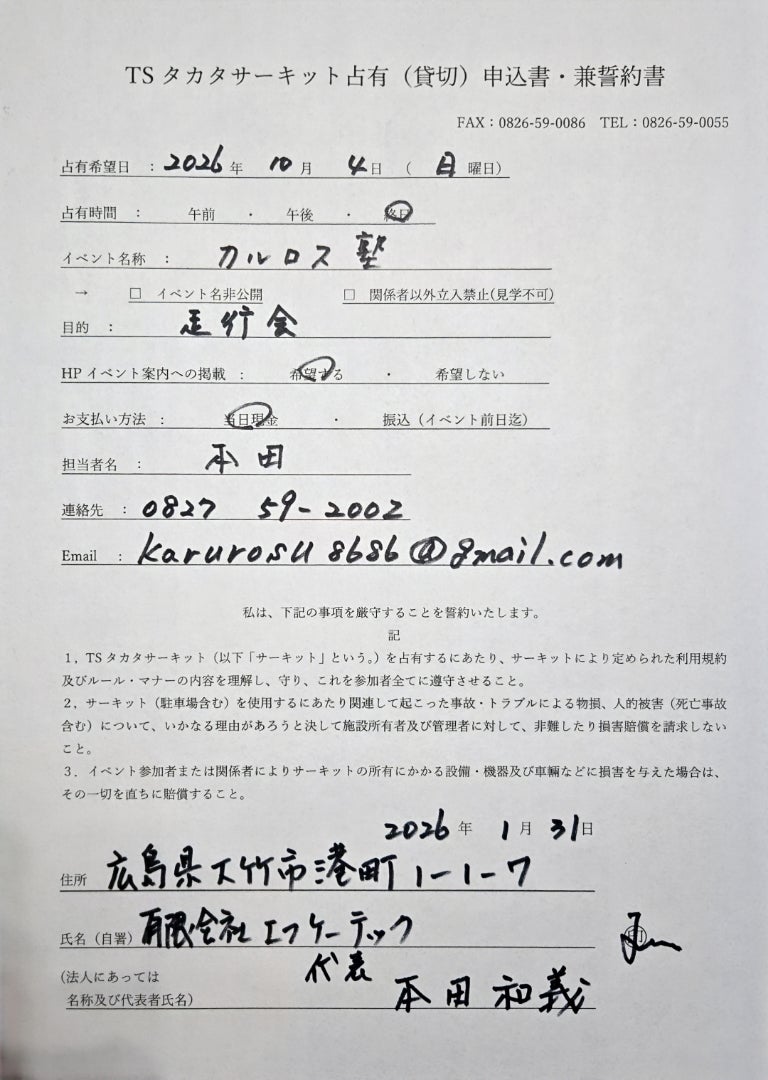 TSタカタサーキット占有（貸切）申込書・兼誓約書
FAX：0826-59-0086　TEL：0826-59-0055
占有希望日　：2026年　10月　4日　（　日　曜日）
占有時間　：　午前　・　午後　・　終日
イベント名称　：　カルロス塾
→　□　イベント名非公開　　□　関係者以外立入禁止(見学不可)
目的　：　走行会
HPイベント案内への掲載　：　希望する　・　希望しない
お支払い方法　：　当日現金　・　振込（イベント前日迄）
担当者名　：　本田
連絡先　：0827　59-2002
Email　：karurosu8686@gmail.com
私は、下記の事項を厳守することを誓約いたします。
記
1，TSタカタサーキット（以下「サーキット」という。）を占有するにあたり、サーキットにより定められた利用規約
及びルール・マナーの内容を理解し、守り、これを参加者全てに遵守させること。
2．サーキット（駐車場含む）を使用するにあたり関連して起こった事故・トラブルによる物損、人的被害（死亡事故
含む）について、いかなる理由があろうと決して施設所有者及び管理者に対して、非難したり損害賠償を請求しない
こと。
3．イベント参加者または関係者によりサーキットの所有にかかる設備・機器及び車輛などに損害を与えた場合は、
その一切を直ちに賠償すること。
2026年　1月　31日
住所　広島県大竹市港町1-1-7
氏名（自署）有限会社エフケーテック　印
(法人にあっては　代表
名称及び代表者氏名）　本田和義